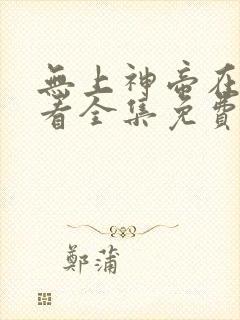 無上神帝在
看全集免費
鄭蒲